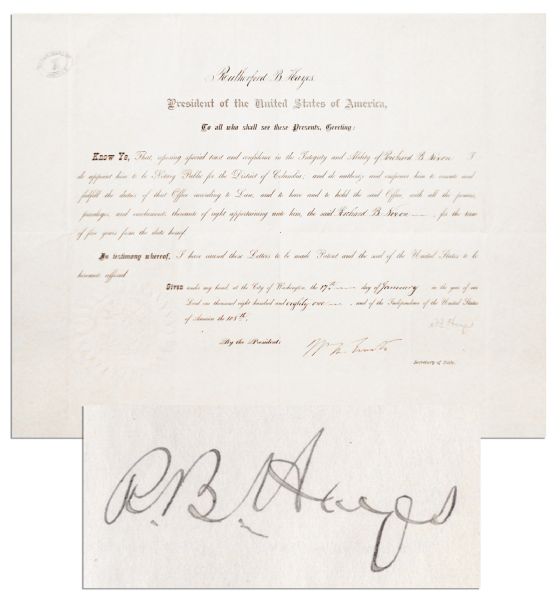 Rutherford B Hayes
President of the United States of America,
To all who shall see these Presents, Greeting:
Know Ye, That, reposing special trust and confidence in the Integrity and Ability of Richard B Nixon I
do appoint him to be Notary Public for the District of Columbia; and do authorize and empower him to execute and
fulfill the duties of that Office according to Law, and to have and to hold the said Office, with all the powers,
privileges, and emoluments thereunto of right appertaining unto him, the said Richard B Nixon for the term
of five years from the date hereof.
In testimony whereof, I have caused these Letters to be made Patent and the seal of the United States to be
hereunto affixed
Given under my hand at the City of Washington the 17th day of January in the year of our
Lord one thousand eight hundred and eighty one, and of the Independence of the United States
of America the 105th.
R B Hayes
By the President:
Wm M. Evarts
Secretary of State.
R. B. Hayes